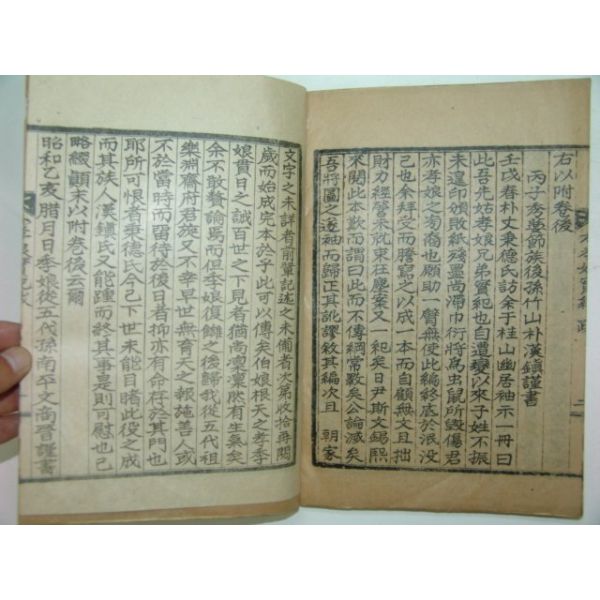 右以附卷後
丙子秀葽節族後孫竹山朴漢鎮謹書
壬戌春朴丈秉德氏訪余于桂山幽居袖示一冊曰
此吾先姑孝娘兄弟實紀也自遭變以來子姓不振
未遑印頒敗紙殘墨尚滯巾衍將為虫鼠所毀傷君
亦孝娘之彌甥也願助一臂無使此編終底於泯沒
己也余拜受而謄寫之以成一本而自顧無文且拙
財力經營未就束在塵案又一紀矣日尹斯文錫熙
來閱此本歎而謂曰此而不傳綱常斁矣公論滅矣
吾將圖之遂袖而歸正其訛謬敘其編次且 朝家
文字之未詳者前輩記述之未備者次第收拾再閱
歲而始成完本於乎此可以傳矣伯娘根天之孝季
娘貫日之誠百世之下見者猶尚凜凜然有生氣矣
余不敢贅論焉而但季娘復讎之後歸我從五代祖
樂淵齋府君旋又不幸早世無育天之報施善人或
不於當時而留待於後日者抑亦有命存於其間也
耶所可恨者秉德氏今已下世未能目睹此役之成
而其族人漢鎮氏又能踵而終其事是則可慰也已
略綴顛末以附卷後云爾
昭和乙亥臘月日季娘從五代孫南平文尚晉謹書